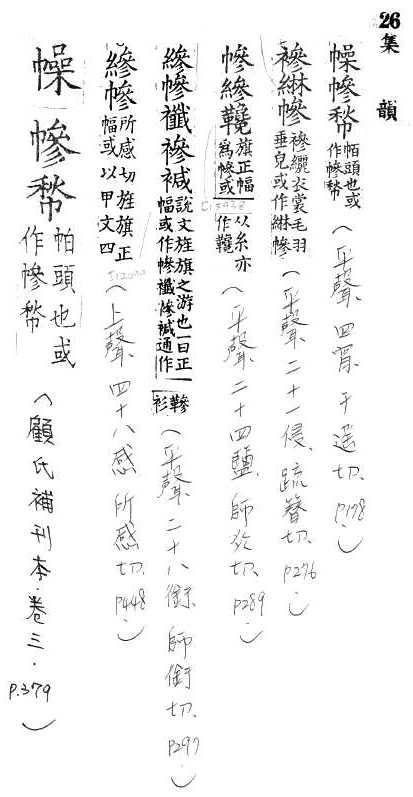 26 集韻
幧幓𢂹 帞頭也或作幓𢂹 (平聲、四宵、千遙切、P.178.)
襂綝幓 襂纚衣裳毛羽垂皃或作綝幓 (平聲、二十一侵、疏簪切、P276.)
幓縿 旗正幅為幓或从糸亦作 (平聲、二十四鹽、師炎切、P289.)
縿幓襳襂裓 說文旌旗之游也一曰正幅或作幓襳襂裓通作衫 (平聲、二十八銜、師銜切、P297)
縿幓 所感切旌旗正幅或以甲文四 (上聲、四十八感、所感切、P448.)
幧幓𢂹 帕頭也或作幓𢂹 (顧氏補刊本.卷三.P.379)